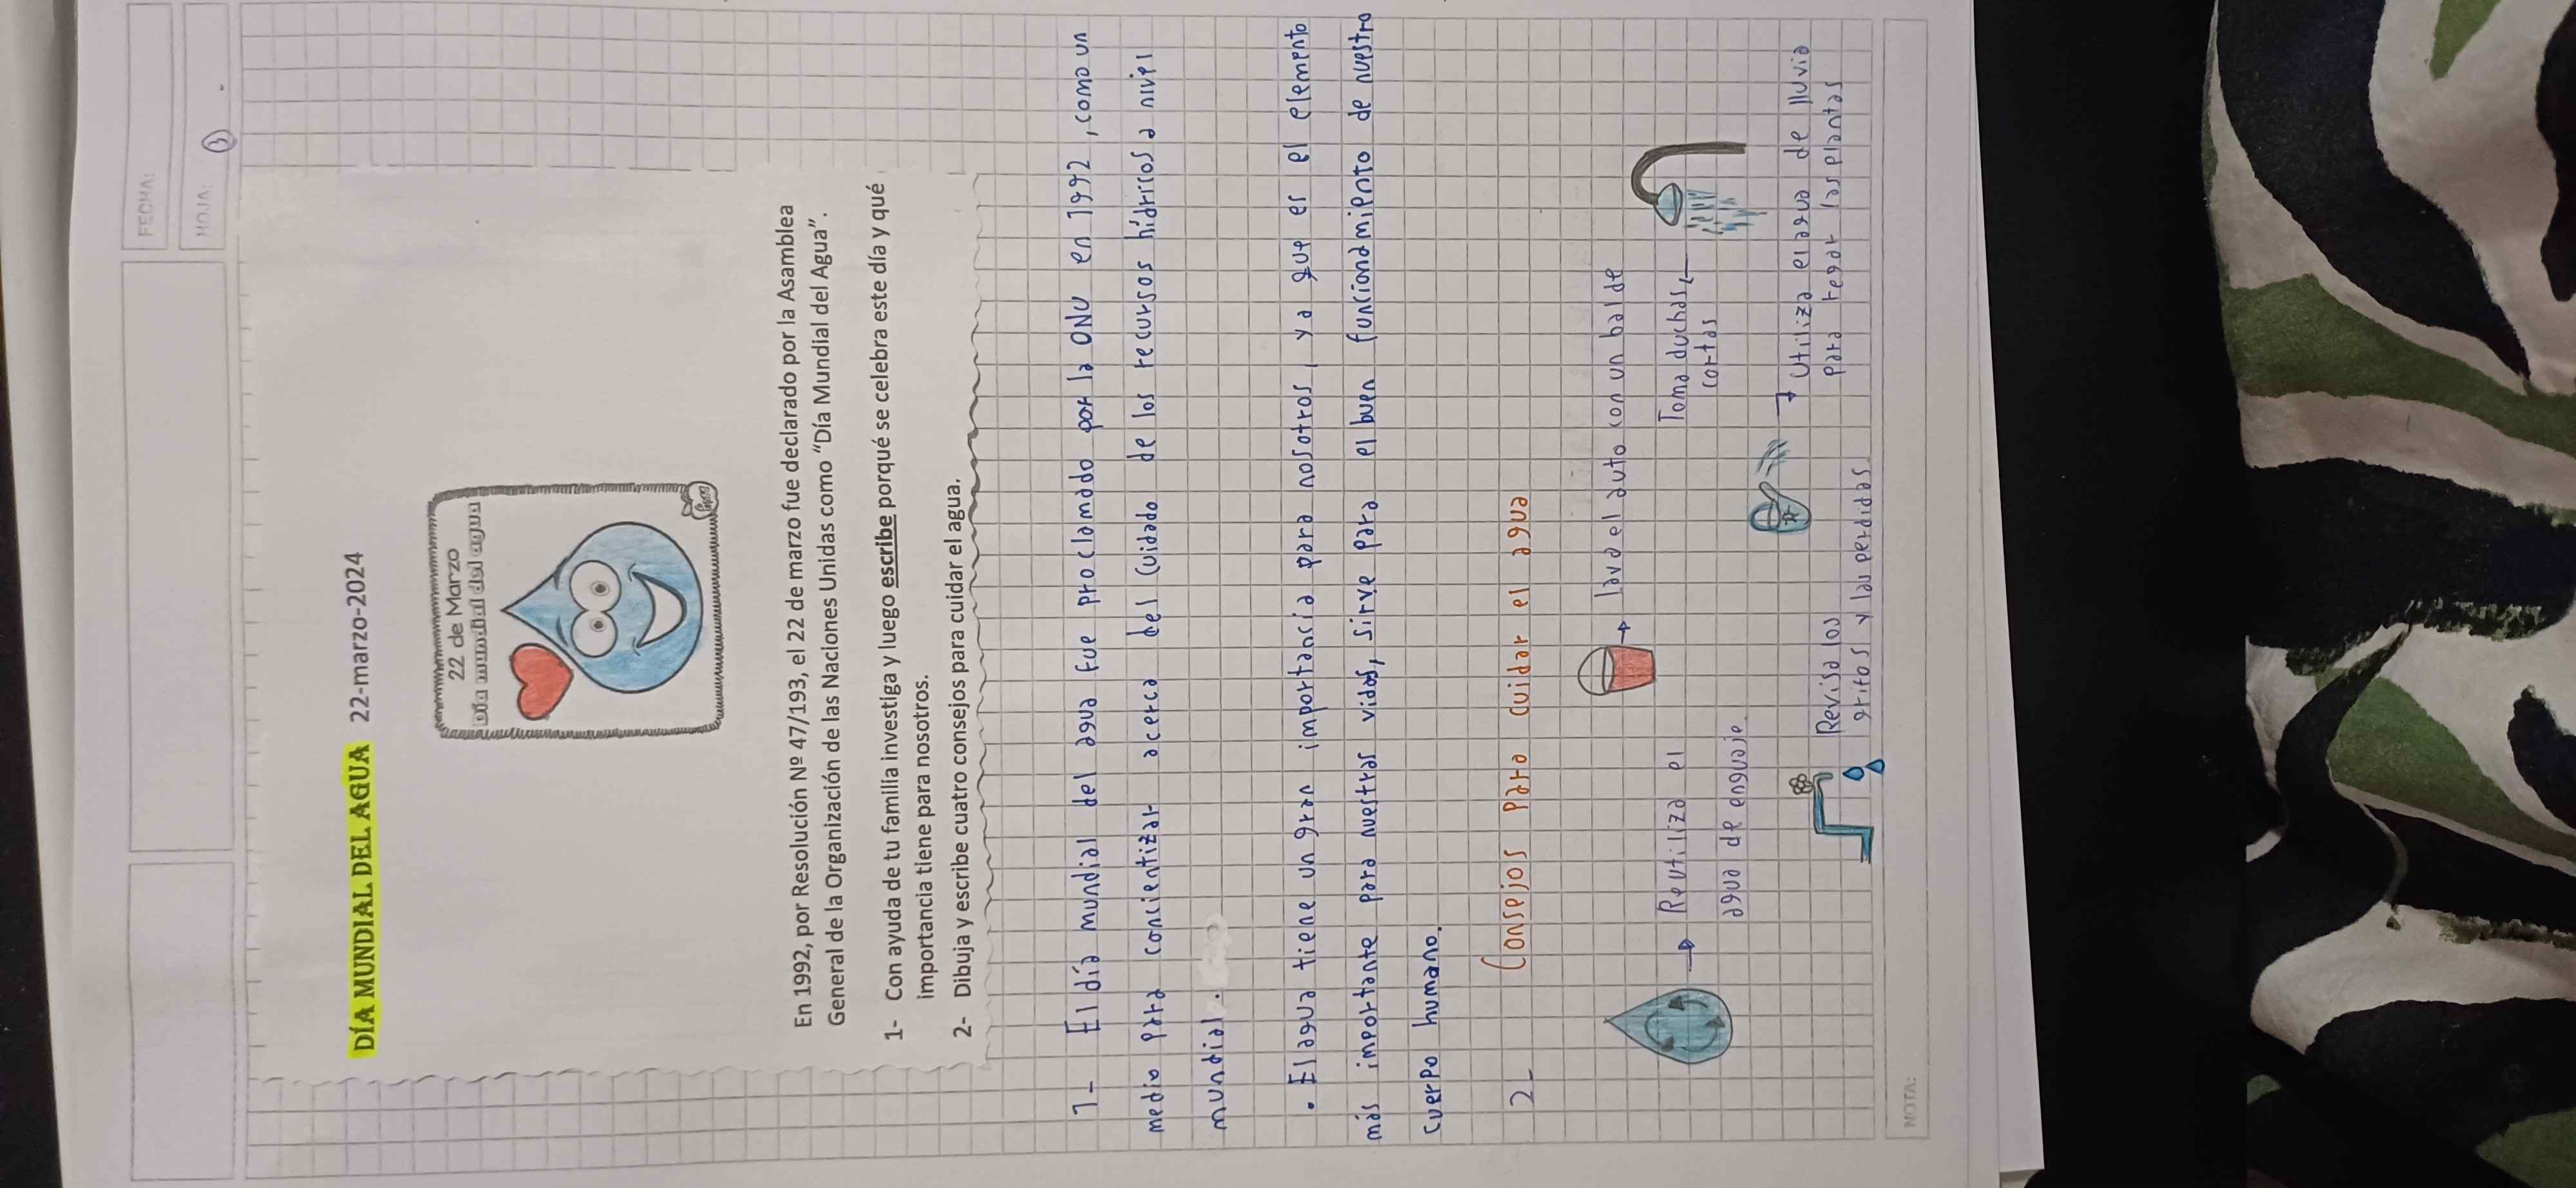 FECHA:
HOJA: 3
DÍA MUNDIAL DEL AGUA 22-marzo-2024
22 de Marzo
Día mundial del agua
En 1992, por Resolución Nº 47/193, el 22 de marzo fue declarado por la Asamblea
General de la Organización de las Naciones Unidas como "Día Mundial del Agua".
1- Con ayuda de tu familia investiga y luego escribe porqué se celebra este día y qué
importancia tiene para nosotros.
2- Dibuja y escribe cuatro consejos para cuidar el agua.
1- El día mundial del agua fue proclamado por la ONU en 1992, como un
medio para concientizar acerca del cuidado de los recursos hídricos a nivel
mundial.
. El agua tiene un gran importancia para nosotros, ya que es el elemento
más importante para nuestras vidas, sirve para el buen funcionamiento de nuestro
cuerpo humano.
2- Consejos para cuidar el agua
→ lava el auto con un balde
→ Reutiliza el
agua de enguaje.
Toma duchas ←
cortas
→ Utiliza el agua de lluvia
para regar las plantas
Revisa los
gritos y las perdidas
NOTA: